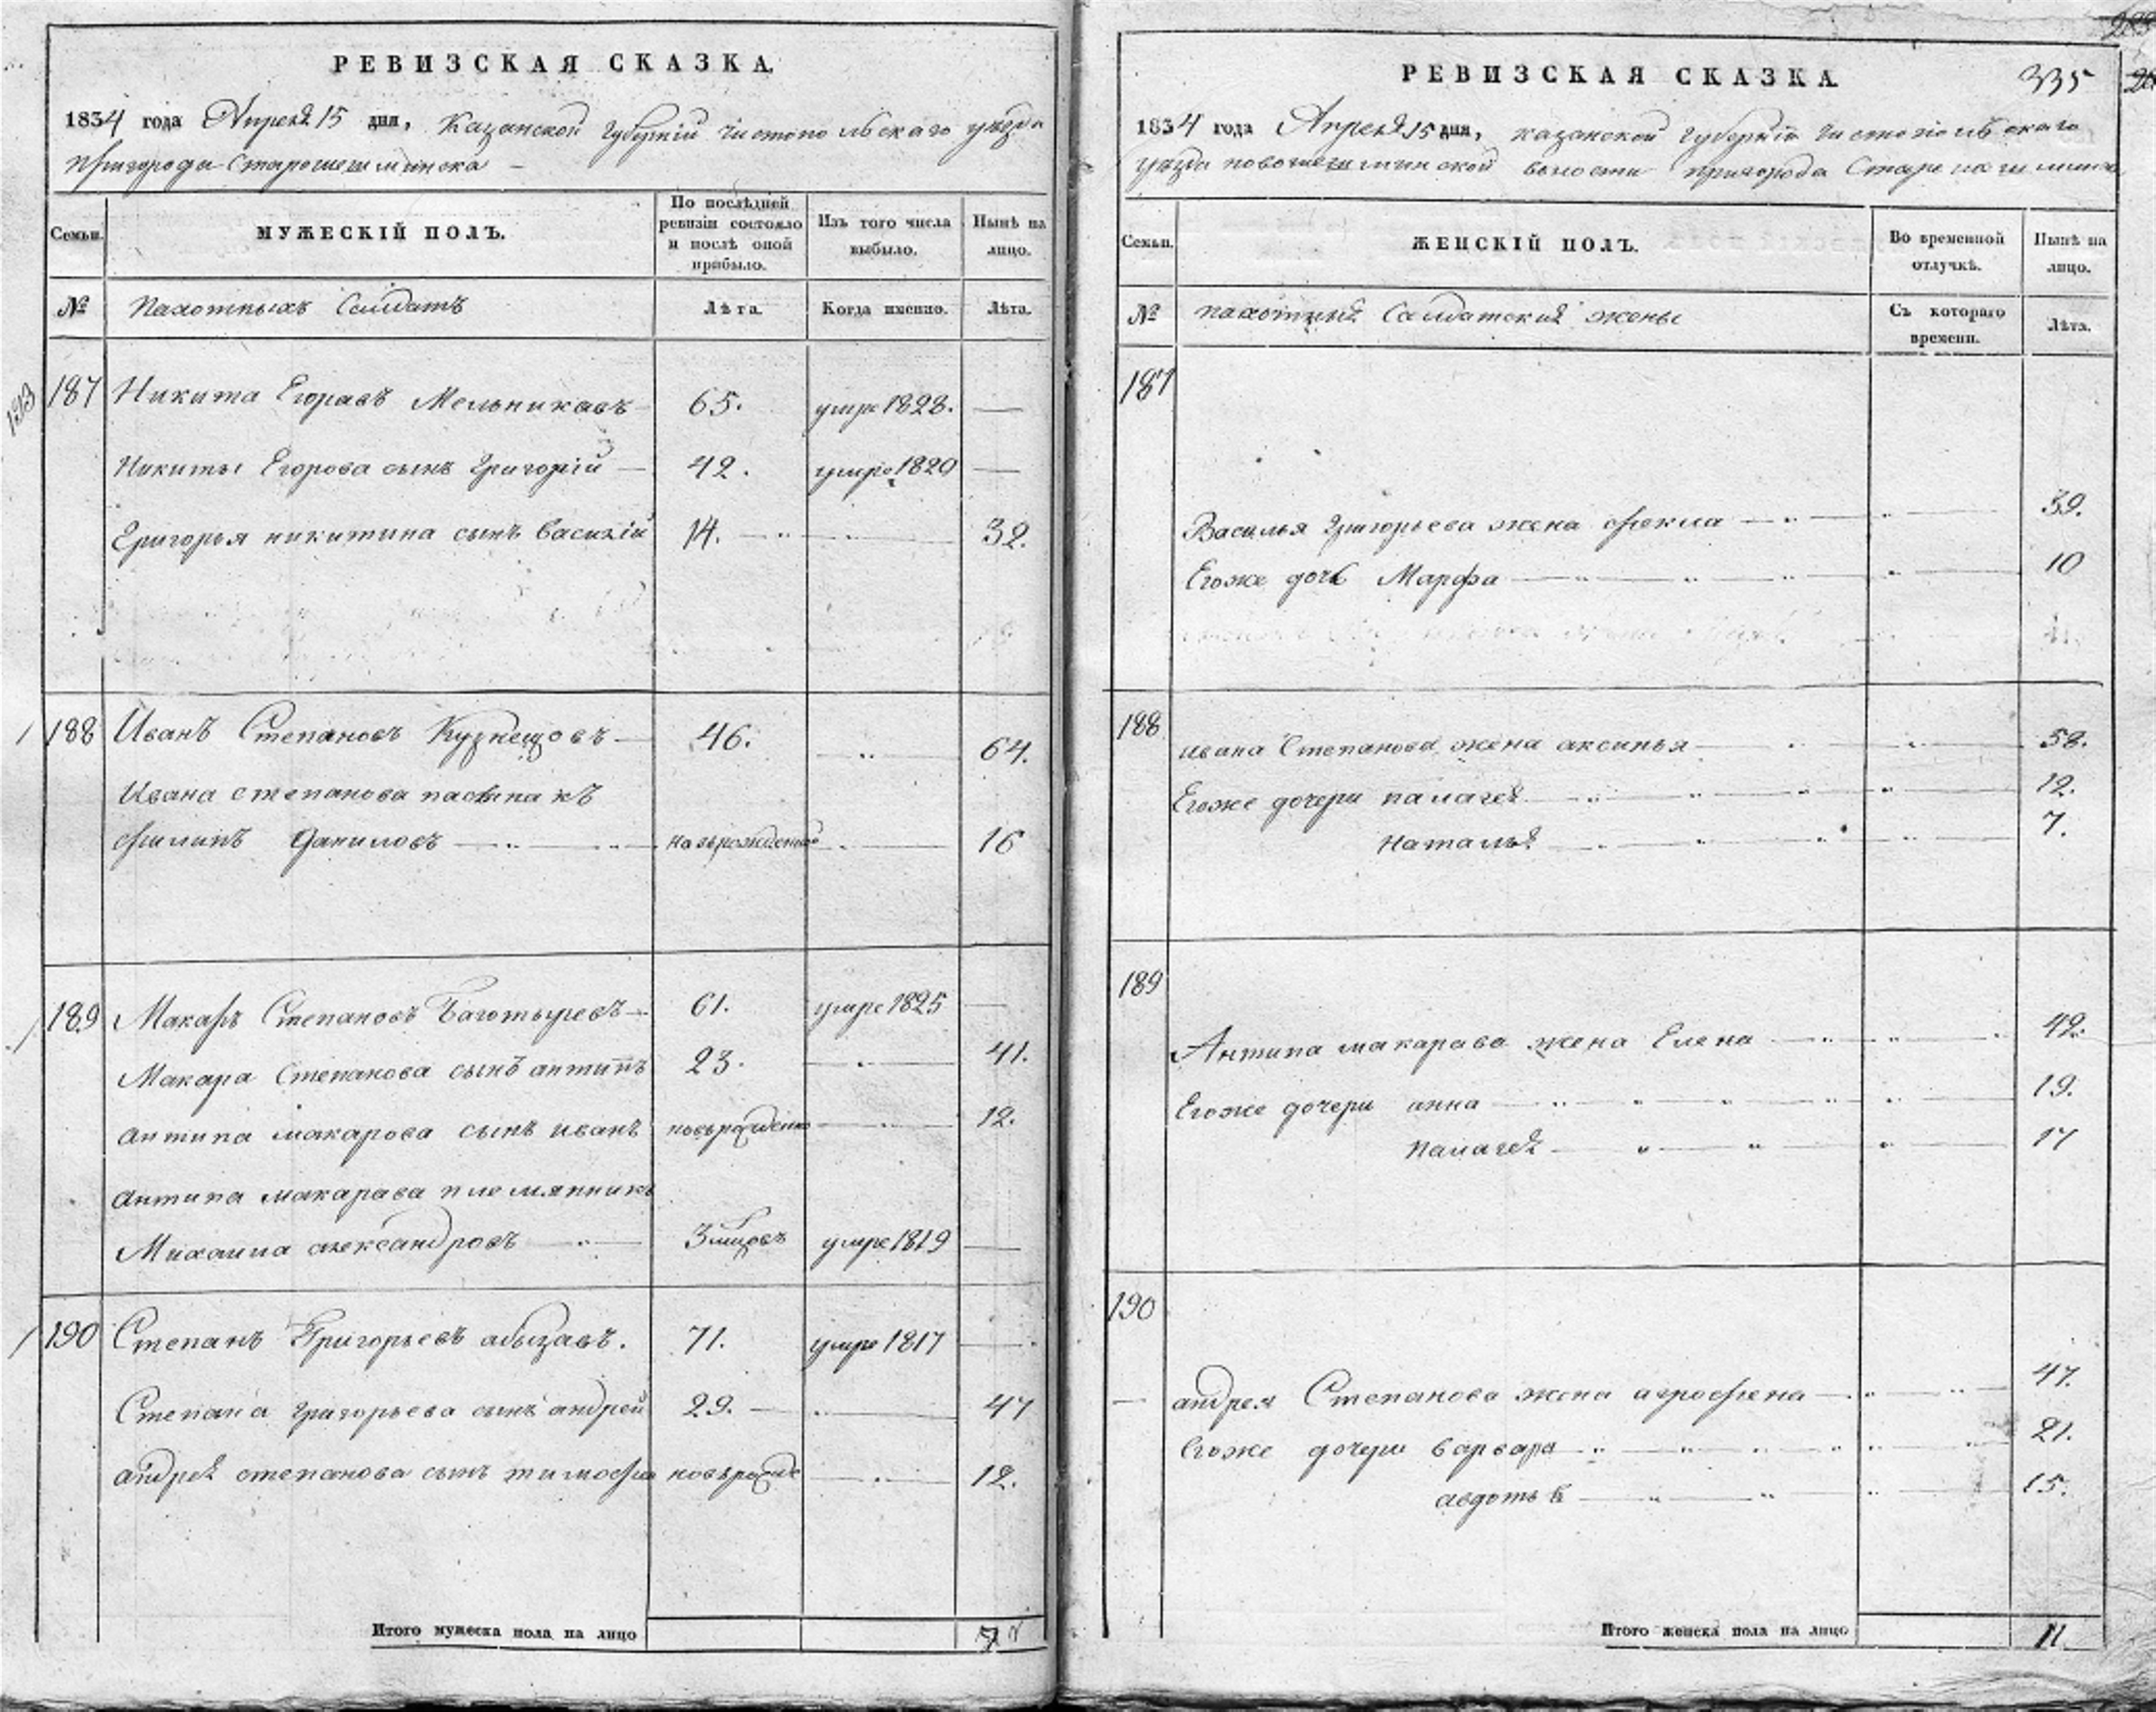 РЕВИЗСКАЯ СКАЗКА.
1834 года Апреля 15 дня, Казанской Губернiи Чистопольскаго уезда
пригорода Старошешминска
Семьи.
МУЖЕСКІЙ ПОЛЪ.
По послѣдней ревизіи состояло и послѣ оной прибыло.
Изъ того числа выбыло.
Нынѣ на лицо.
№ Пахотныхъ Салдатъ Лѣта. Когда именно. Лѣта.
193
187 Никита Егоравъ Мельникавъ 65. умре 1828. —
Никиты Егорова сынъ Григорій — 42. умре 1820 —
Григорья никитина сынъ Василій 14. 32.
188 Иванъ Степановъ Кузнецовъ 46. 64.
Ивана степанова пасынакъ
филипъ Даниловъ 16
189 Макаръ Степановъ Баготыревъ 61. умре 1825 —
Макара Степанова сынъ антипъ 23. 41.
Антипа макарова сынъ иванъ новърожденъ 12.
Антипа макарава племянникъ
Михаила александровъ 3 мцовъ умре 1819 —
190 Степанъ Григорьевъ абызавъ. 71. умре 1817
Степана григорьева сынъ андрей 29. 47
андрея степанова сынъ тимофей новърожде 12.
Итого мужеска пола на лицо 7
РЕВИЗСКАЯ СКАЗКА.
335
1834 года Апреля 15 дня, казанской Губернiи Чистопольскаго
уезда новошешминской волости пригорода Старошешминска
Семьи.
ЖЕНСКІЙ ПОЛЪ.
Во временной отлучкѣ.
Нынѣ на лицо.
№ пахотныя Салдатския жены Съ котораго времени. Лѣта.
187
Василья Григорьева жена фекла 39.
Егоже дочь Марфа 10
188 ивана Степанова жена аксинья 58.
Егоже дочери палагея 12.
Наталья 7.
189
Антипа макарава жена Елена 42.
Егоже дочери анна 19.
Палагея 17
190
андрея Степанова жена агрофена 47.
Егоже дочери варвара 21.
авдотья 15.
Итого женска пола на лицо 11